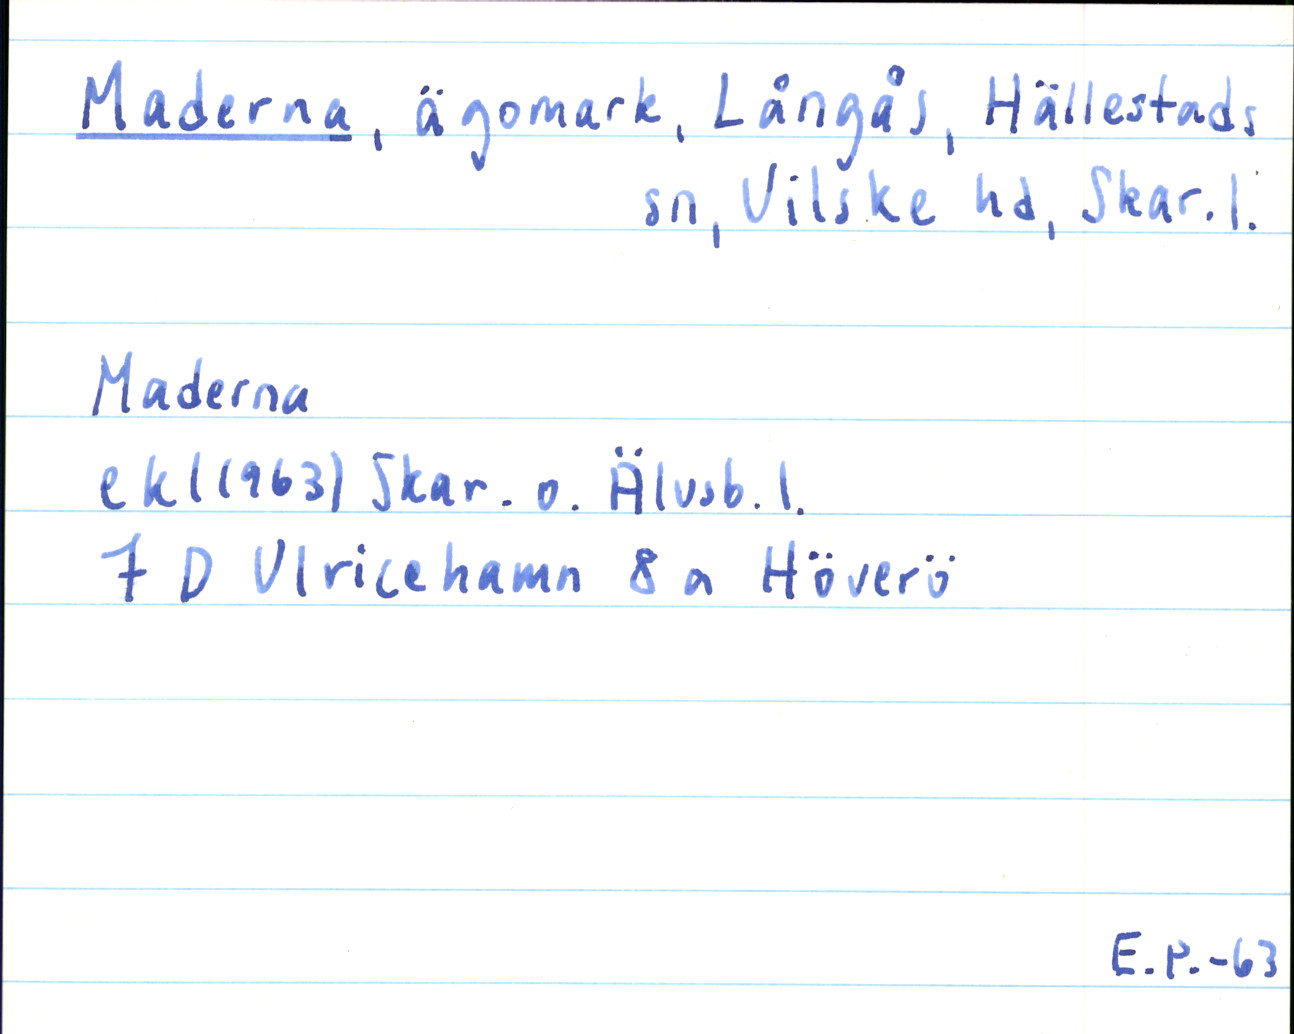 Maderna, ägomark, Långås, Hällestads
sn, Vilske hd, Skar.l.
Maderna
ekl (1963) Skar. o. Älvsb. l.
7 D Ulricehamn 8 a Höverö
E.P.-63